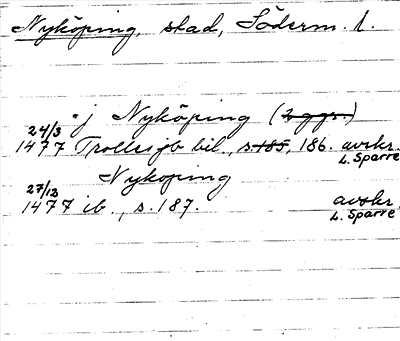 Nyköping, stad, Söderm. l.
j Nyköping (2 ggr.)
24/3
1477 Trollesjöb bil., s. 185, 186. avskr.
L. Sparre
Nyköping
27/12
1477 ib., s. 187. avskr.
L. Sparre